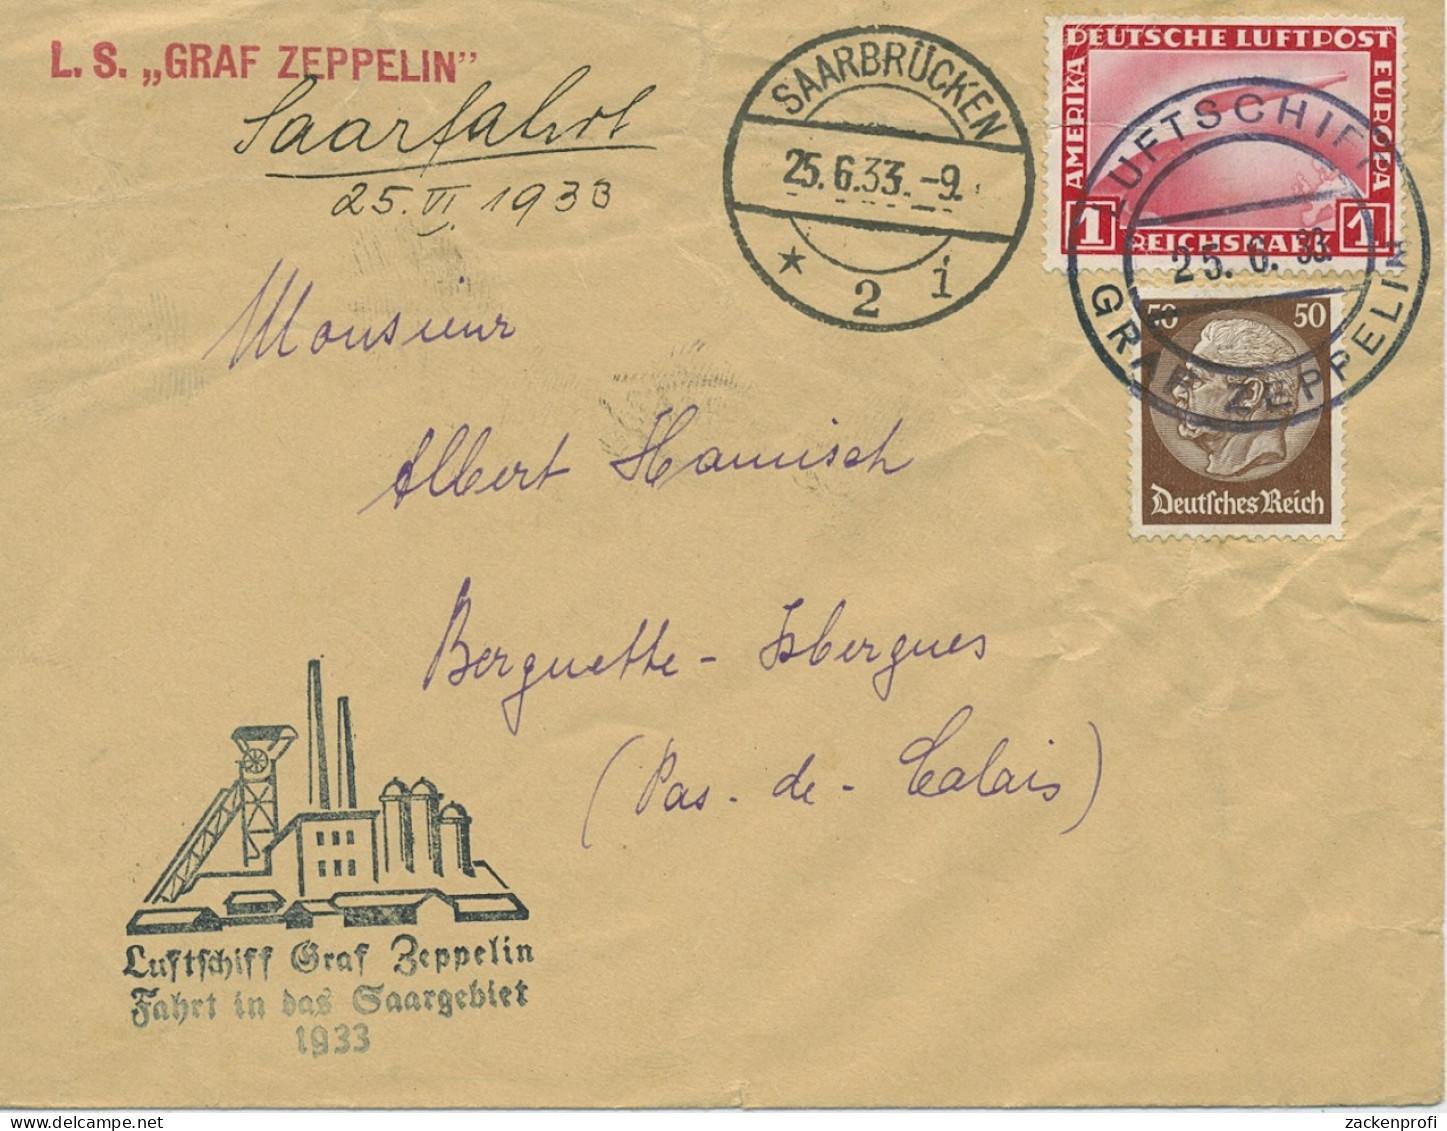 L. S. „GRAF ZEPPELIN”
Saarfahrt
25. VI. 1933
SAARBRÜCKEN
25.6.33.-9.
* 2 i
DEUTSCHE LUFTPOST
AMERIKA
EUROPA
1 REICHSMARK 1
LUFTSCHIFF
25. 6. 33.
GRAF ZEPPELIN
50 50
Deutsches Reich
Monsieur
Albert Hamisch
Berguette - Isbergues
(Pas-de-Calais)
Luftschiff Graf Zeppelin
Fahrt in das Saargebiet
1933
zackenprofi